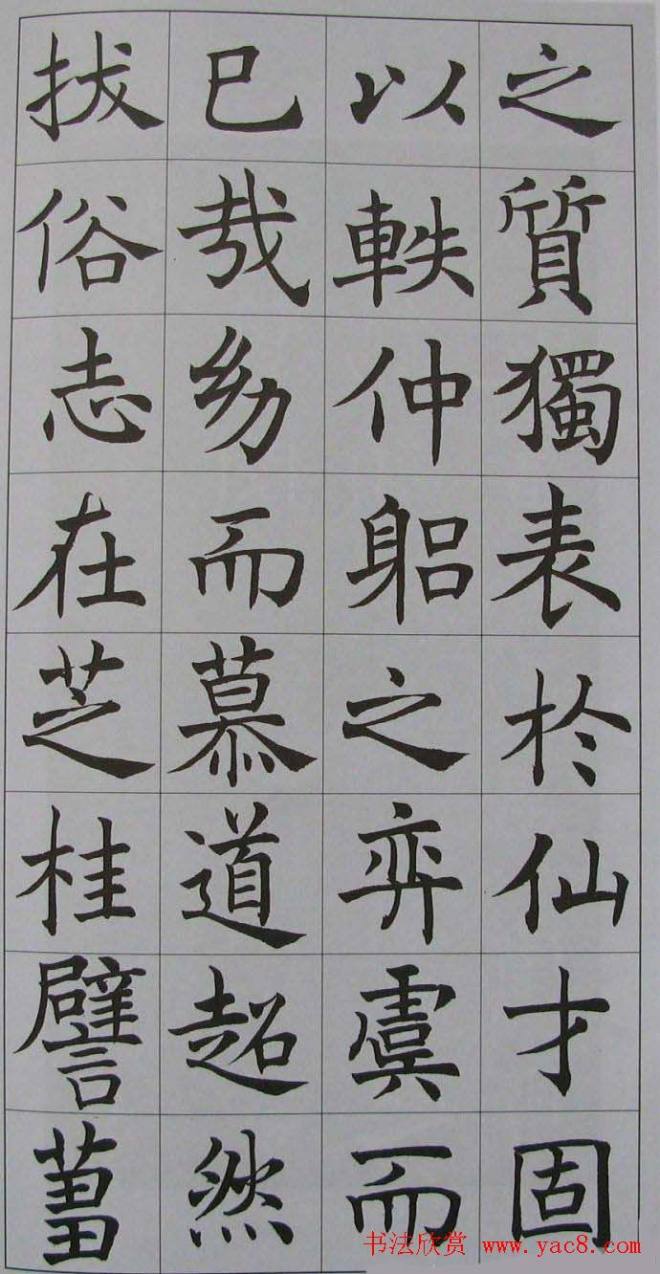 之質獨表於仙才固
以軼仲躳之弈虞而
已哉幼而慕道超然
拔俗志在芝桂譬
书法欣赏 www.yac8.com